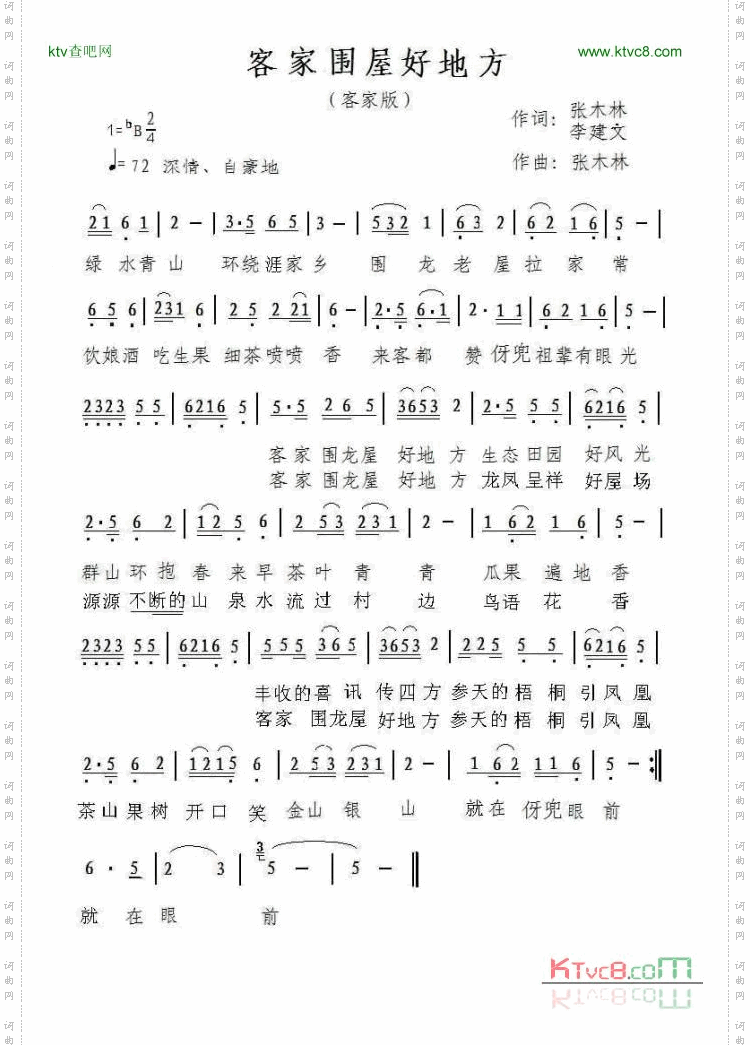 ktv查吧网 www.ktvc8.com
客家围屋好地方
（客家版）
作词：张木林
李建文
1=ᵇB 2/4
♩=72 深情、自豪地
作曲：张木林
2 1 6 1 | 2 － | 3·5 6 5 | 3 － | 5 3 2 1 | 6 3 2 | 6 2 1 6 | 5 － |
绿水青山 环绕涯家乡 围龙老屋拉家常
6 5 6 | 2 3 1 6 | 2 5 2 2 1 | 6 － | 2·5 6·1 | 2·1 1 | 6 2 1 6 | 5 － |
饮娘酒 吃生果 细茶喷喷香 来客都赞伢兜祖辈有眼光
2 3 2 3 5 5 | 6 2 1 6 5 | 5·5 2 6 5 | 3 6 5 3 2 | 2·5 5 5 | 6 2 1 6 5 |
客家围龙屋 好地方 生态田园 好风光
客家围龙屋 好地方 龙凤呈祥 好屋场
2·5 6 2 | 1 2 5 6 | 2 5 3 2 3 1 | 2 － | 1 6 2 1 6 | 5 － |
群山环抱春来早茶叶青青 瓜果遍地香
源源不断的山泉水流过村边 鸟语花香
2 3 2 3 5 5 | 6 2 1 6 5 | 5 5 5 3 6 5 | 3 6 5 3 2 | 2 2 5 5 5 | 6 2 1 6 5 |
丰收的喜讯 传四方 参天的梧桐引凤凰
客家围龙屋 好地方 参天的梧桐引凤凰
2·5 6 2 | 1 2 1 5 6 | 2 5 3 2 3 1 | 2 － | 1 6 2 1 1 6 | 5 － :‖
茶山果树开口笑 金山银山 就在伢兜眼前
6 · 5 | 2 3 | 3 5 － | 5 － ‖
就在眼前
KTvc8.com